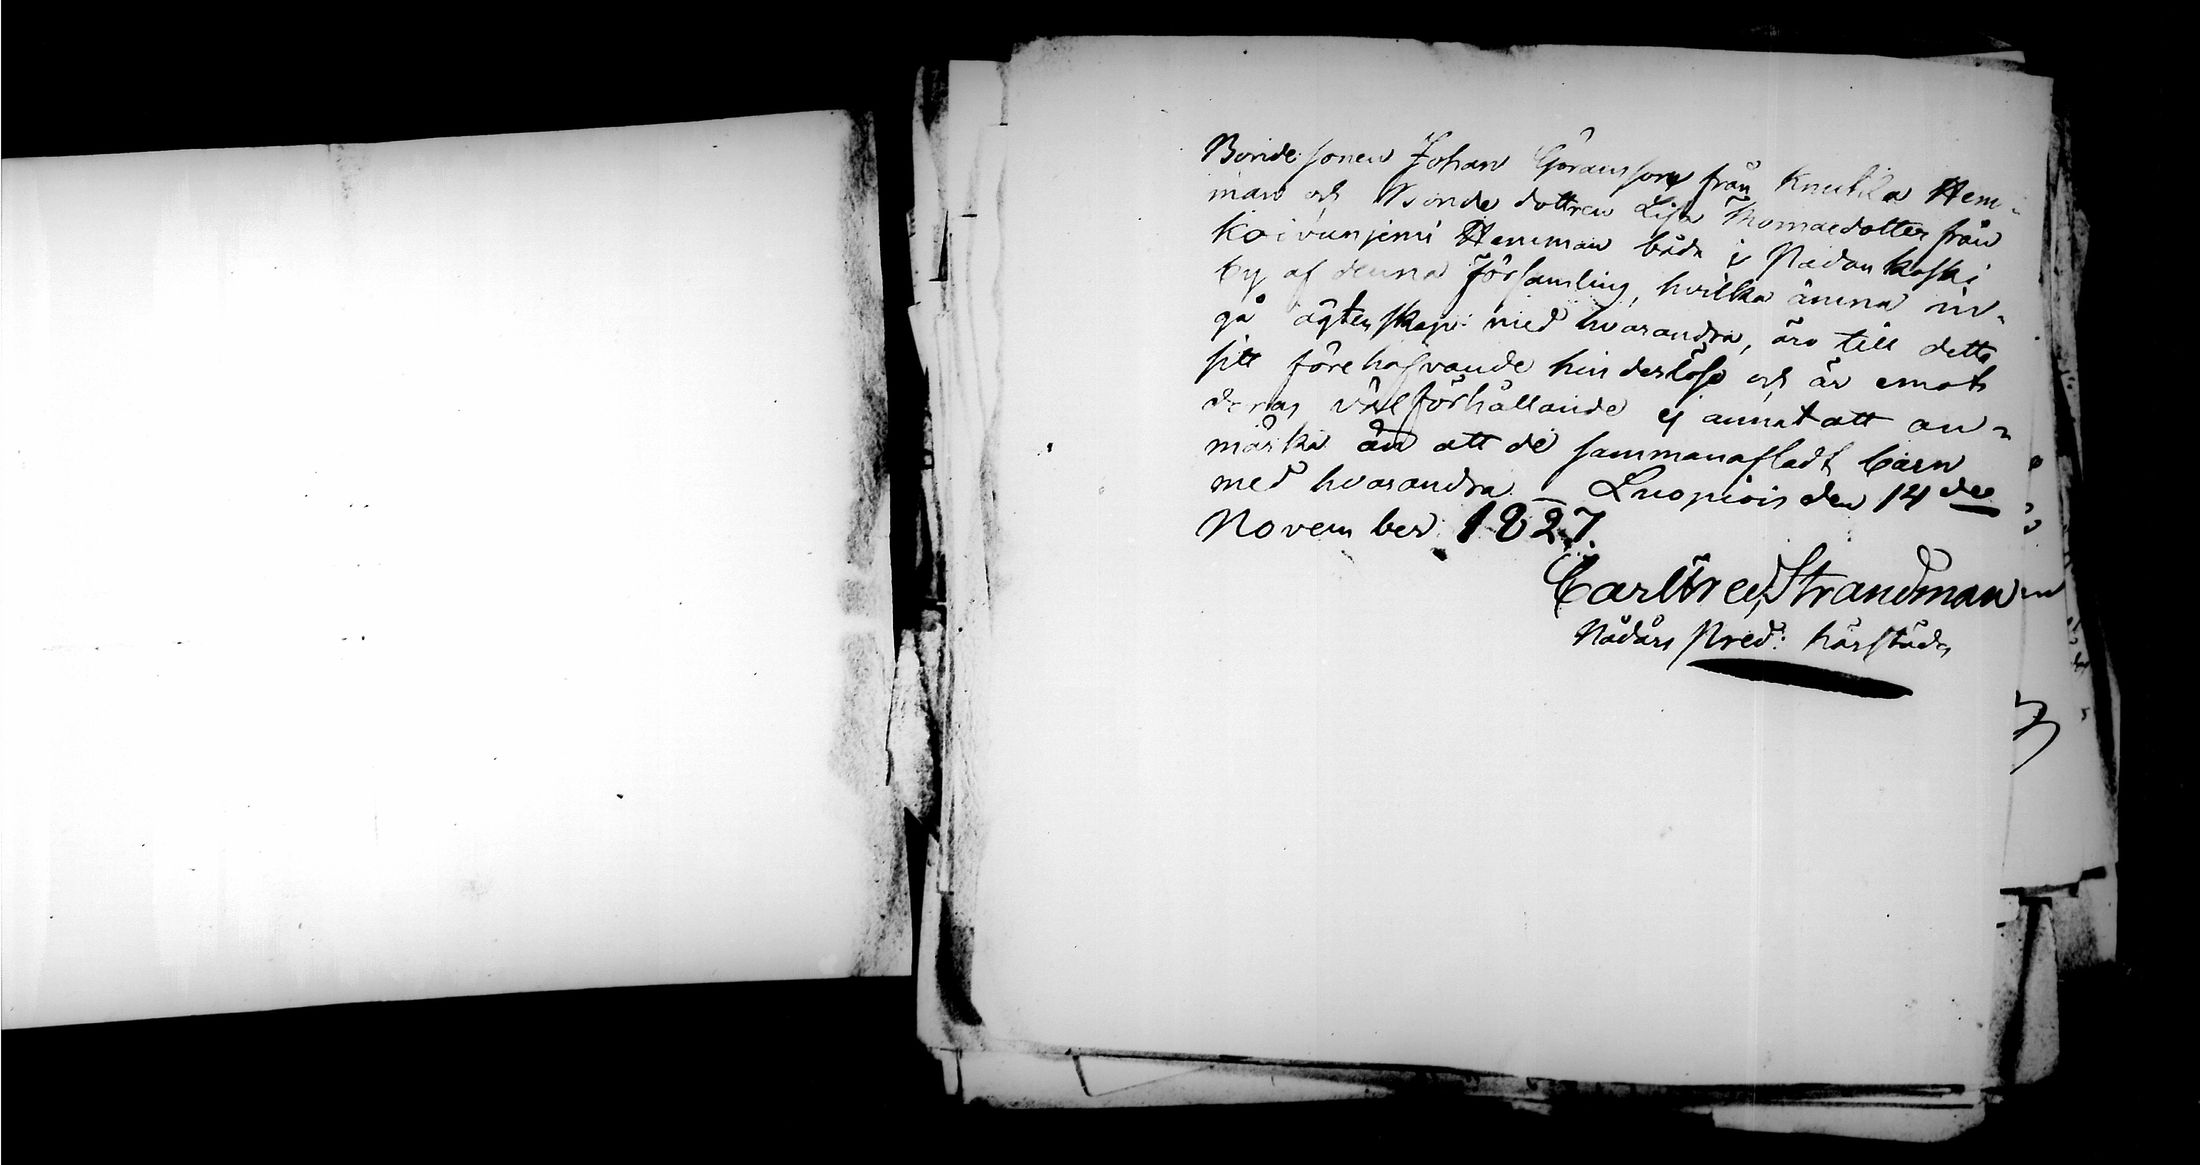 Bondesonen Johan Göransson från Knutila Hem-
man och Bondedottren Lisa Thomaedotter från
Koivunjemi Hemman båda i Padankoski
by af denna Församling, hvilka ämna in-
gå ägtenskap med hvarandra, äro till detta
sitt förehafvande hinderlöse och är emot
deras välförhållande ej annat att an-
märka än att de sammanafladt barn
med hvarandra. Luopiois den 14 de
November 1827.
Carl Fred Strandman
Nådårs Pred: härstädes